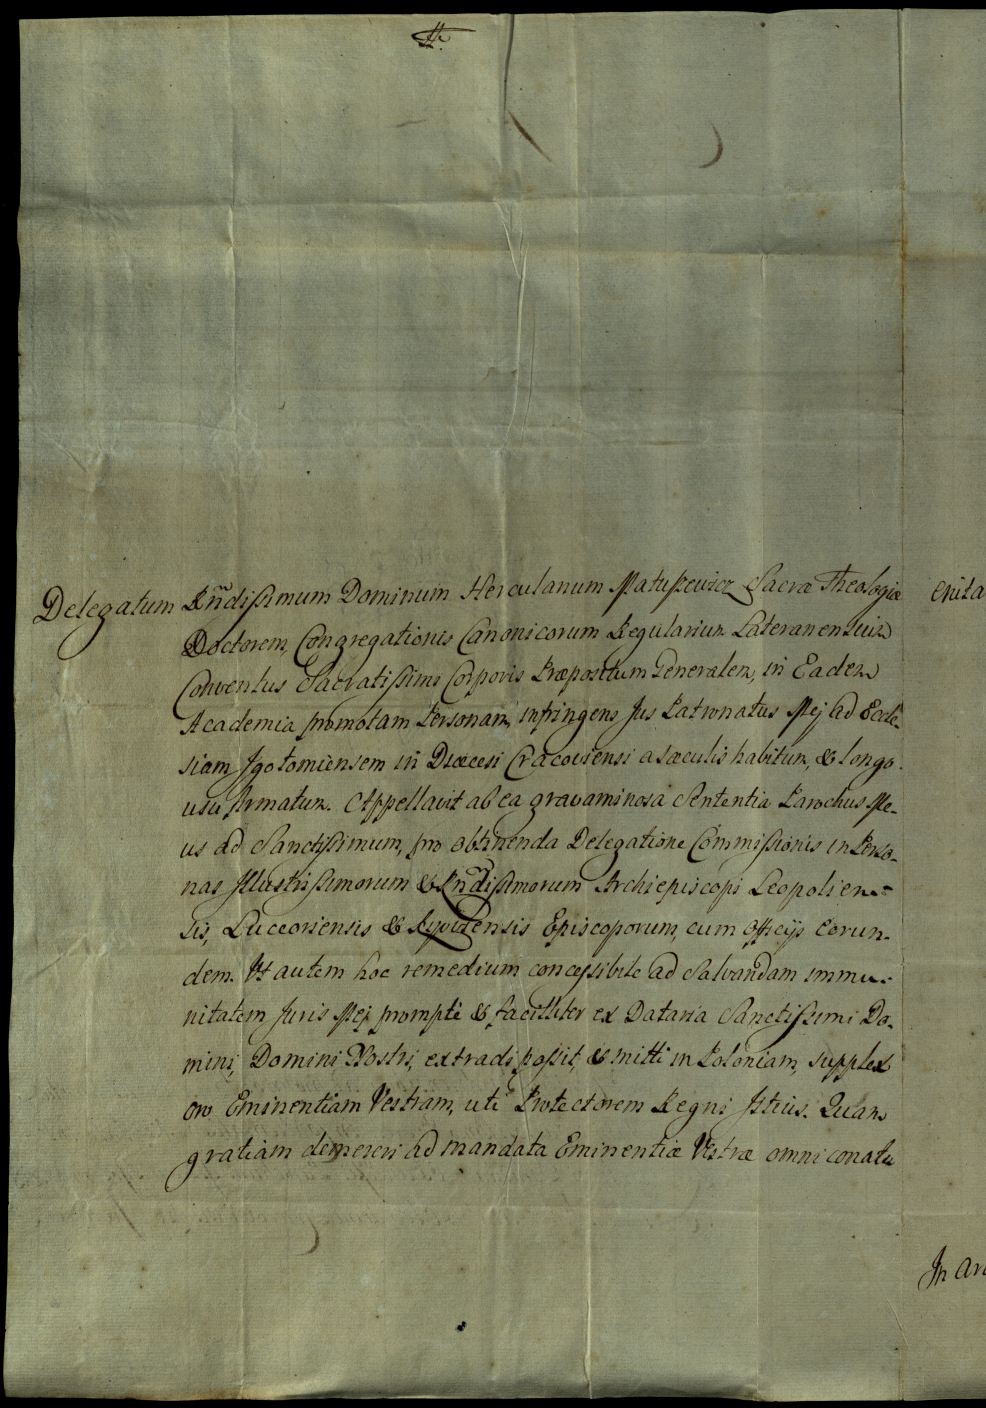 Delegatum Rñdissimum Dominum Herculanum Matuszewicz Sacræ Theologiæ
Doctorem, Congregationis Canonicorum Regularium Lateranensium
Conventus Sacratissimi Corporis Præpositum Generalem, in Eadem
Academia promotam Personam, infringens Jus Patronatus Mej ad Eccle-
siam Jgotomiensem in Diœcesi Cracoviensi a sæculis habitum, & longo
usu firmatum. Appellavit ab ea gravaminosa Sententia Parochus Me-
us ad Sanctissimum, pro obtinenda Delegatione Commissionis in Perso-
nas Jllustrissimorum & Rñdissimorum Archiepiscopi Leopolien-
sis, Luceoriensis & Episcoporum, cum Officijs eorun-
dem. Ut autem hoc remedium concessibile ad Salvandam immu-
nitatem Juris Mej prompte & faciliter ex Dataria Sanctissimi Do-
mini, Domini Nostri, extradi possit, & mitti in Poloniam, supplex
oro Eminentiam Vestram, uti Protectorem Regni Jstius. Quam
gratiam demereri ad mandata Eminentiæ Vestræ omni conatu
In